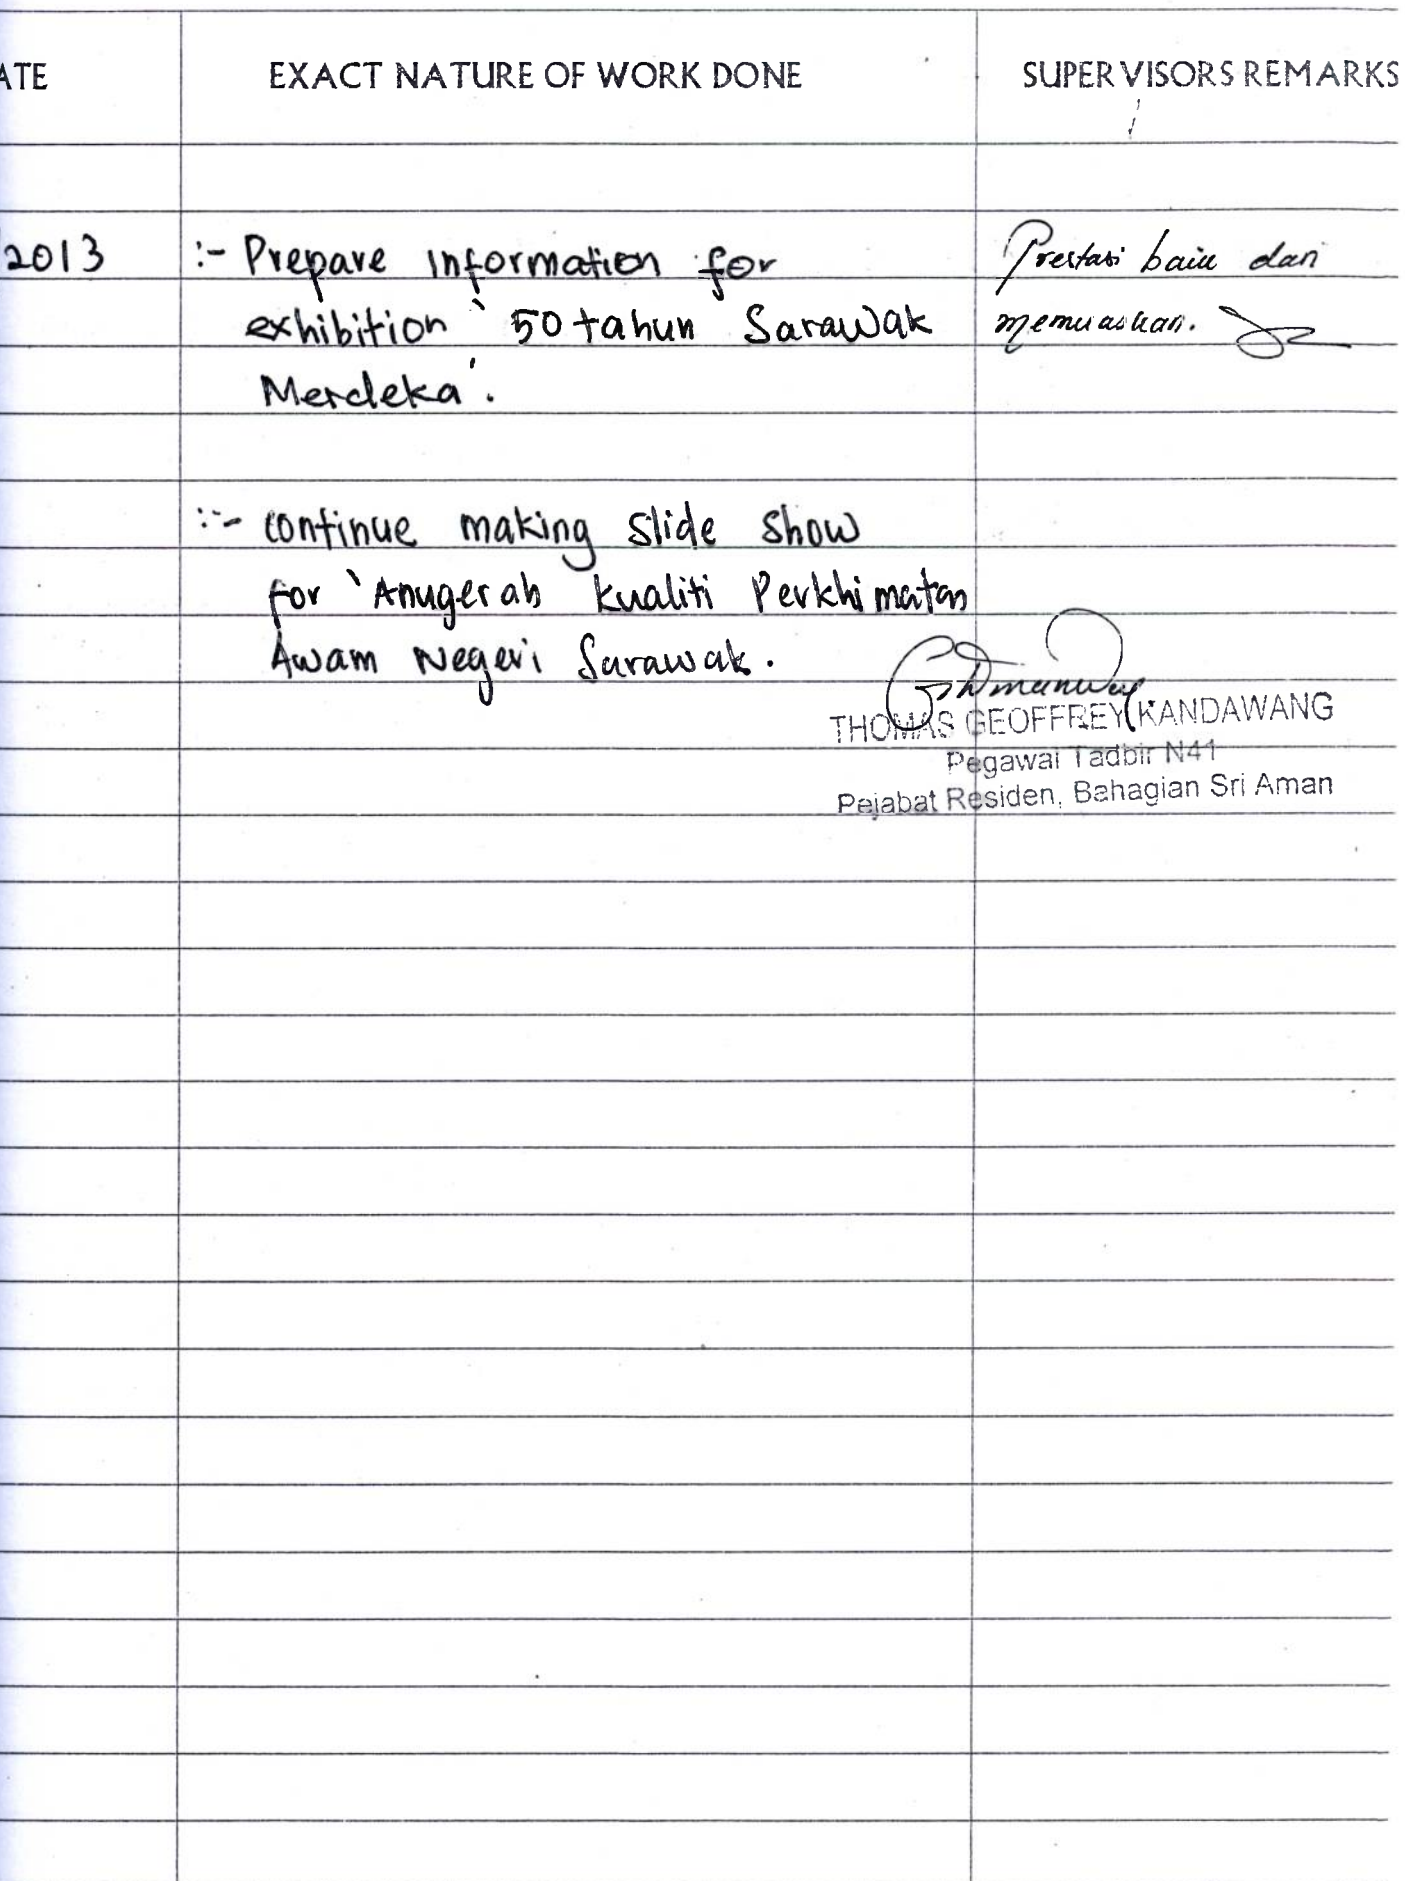 ATE EXACT NATURE OF WORK DONE SUPERVISORS REMARKS
2013 :- Prepare information for Prestasi baik dan
exhibition ` 50 tahun Sarawak memuaskan.
Merdeka'.
:- continue making slide show
for `Anugerah kualiti Perkhimatan
Awam Negeri Sarawak.
THOMAS GEOFFREY KANDAWANG
Pegawai Tadbir N41
Pejabat Residen, Bahagian Sri Aman